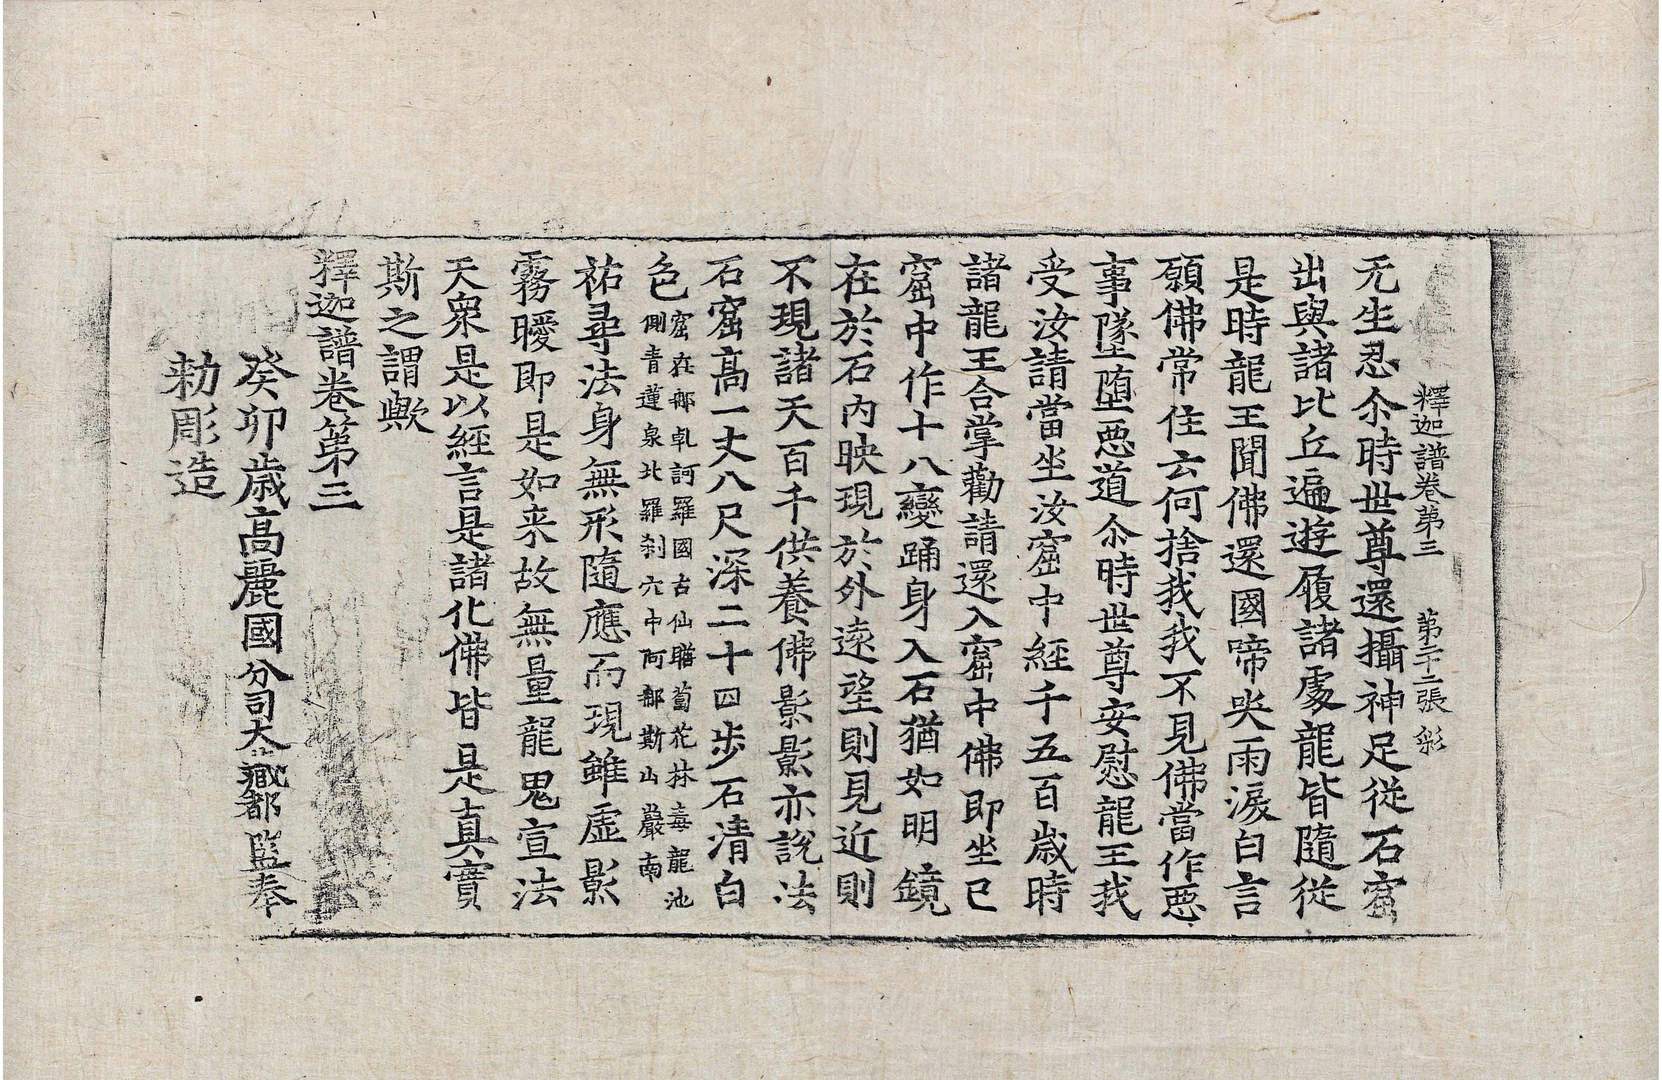 釋迦譜卷第三　第二十二張　彩
无生忍尒時世尊還攝神足從石窟
出與諸比丘遍遊履諸處龍皆隨從
是時龍王聞佛還國啼哭雨淚白言
願佛常住云何捨我我不見佛當作惡
事墜墮惡道尒時世尊安慰龍王我
受汝請當坐汝窟中經千五百歲時
諸龍王合掌勸請還入窟中佛即坐已
窟中作十八變踊身入石猶如明鏡
在於石內映現於外遠望則見近則
不現諸天百千供養佛影影亦說法
石窟高一丈八尺深二十四步石清白
色窟在那乹訶羅國古仙瞻蔔花林毒龍池
側青蓮泉北羅剎穴中阿那斯山巖南
祐尋法身無形隨應而現雖虛影
霧曖即是如来故無量龍鬼宣法
天衆是以經言是諸化佛皆是真實
斯之謂歟
釋迦譜卷第三
癸卯歲高麗國分司大藏都監奉
勅彫造